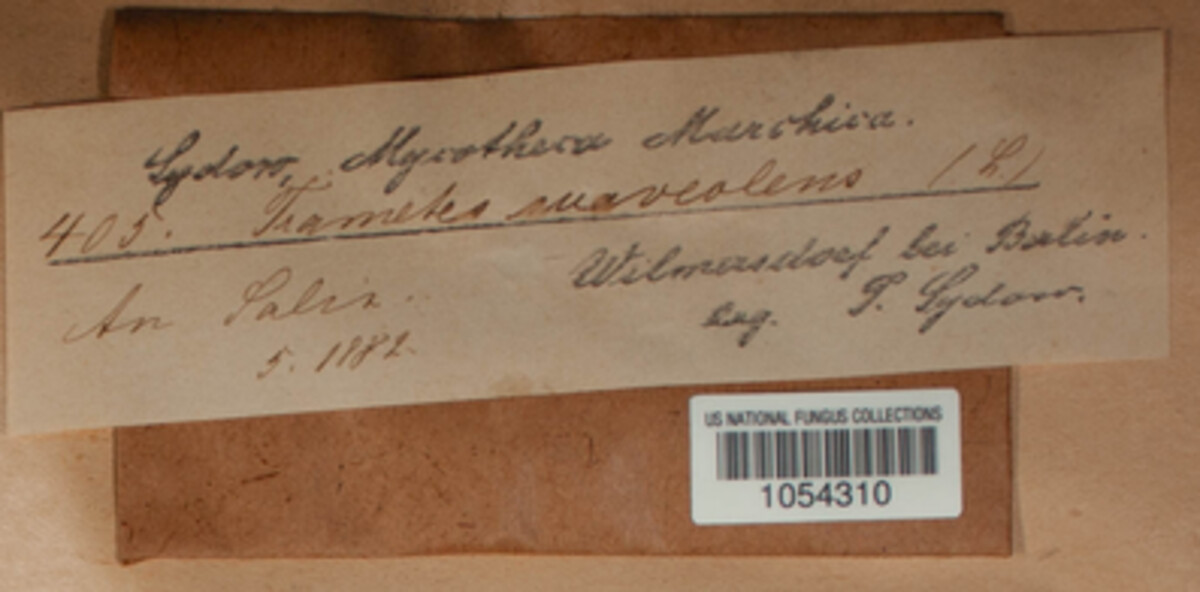 Sydow, Mycotheca Marchica.
405. Trametes suaveolens (L)
An Salix.
5. 1882.
Wilmersdorf bei Berlin.
leg. P. Sydow.
US NATIONAL FUNGUS COLLECTIONS
1054310